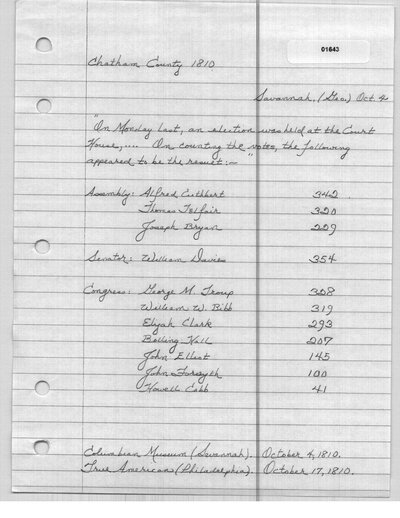 01643
Chatham County 1810
Savannah, (Geo.) Oct. 4
"On Monday last, an election was held at the Court
House,.... On counting the votes, the following
appeared to be the result:—"
Assembly: Alfred Cuthbert 342
Thomas Telfair 320
Joseph Bryan 209
Senator: William Davies 354
Congress: George M. Troup 308
William W. Bibb 319
Elijah Clark 293
Bolling Hall 207
John Elliot 145
John Forsyth 100
Howell Cobb 41
Columbian Museum (Savannah). October 4, 1810.
True American (Philadelphia). October 17, 1810.